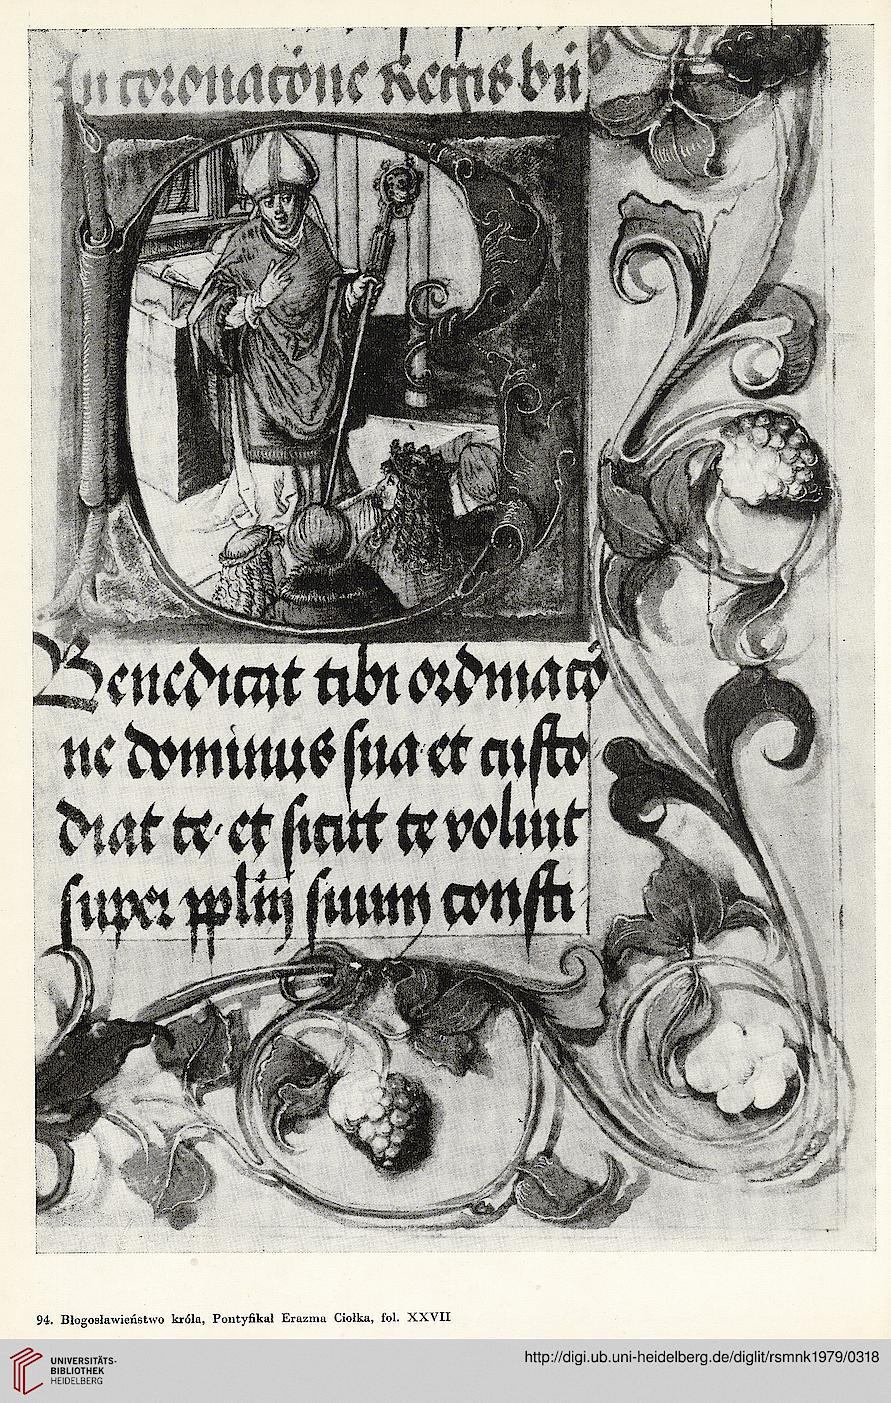 In coronacōne Regis bn̄
Benedicat tibi ordinacō
ne dominus sua et custo
diat te· et sicut te voluit
super pplm̄ suum consti
94. Błogosławieństwo króla, Pontyfikał Erazma Ciołka, fol. XXVII
UNIVERSITÄTS-
BIBLIOTHEK
HEIDELBERG
http://digi.ub.uni-heidelberg.de/diglit/rsmnk1979/0318